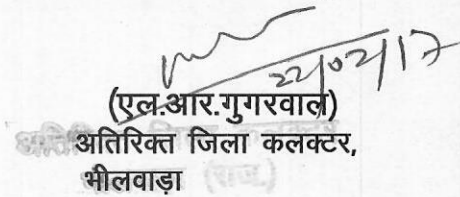 22/02/17
(एल.आर.गुगरवाल)
अतिरिक्त जिला कलक्टर,
भीलवाड़ा
(राज.)